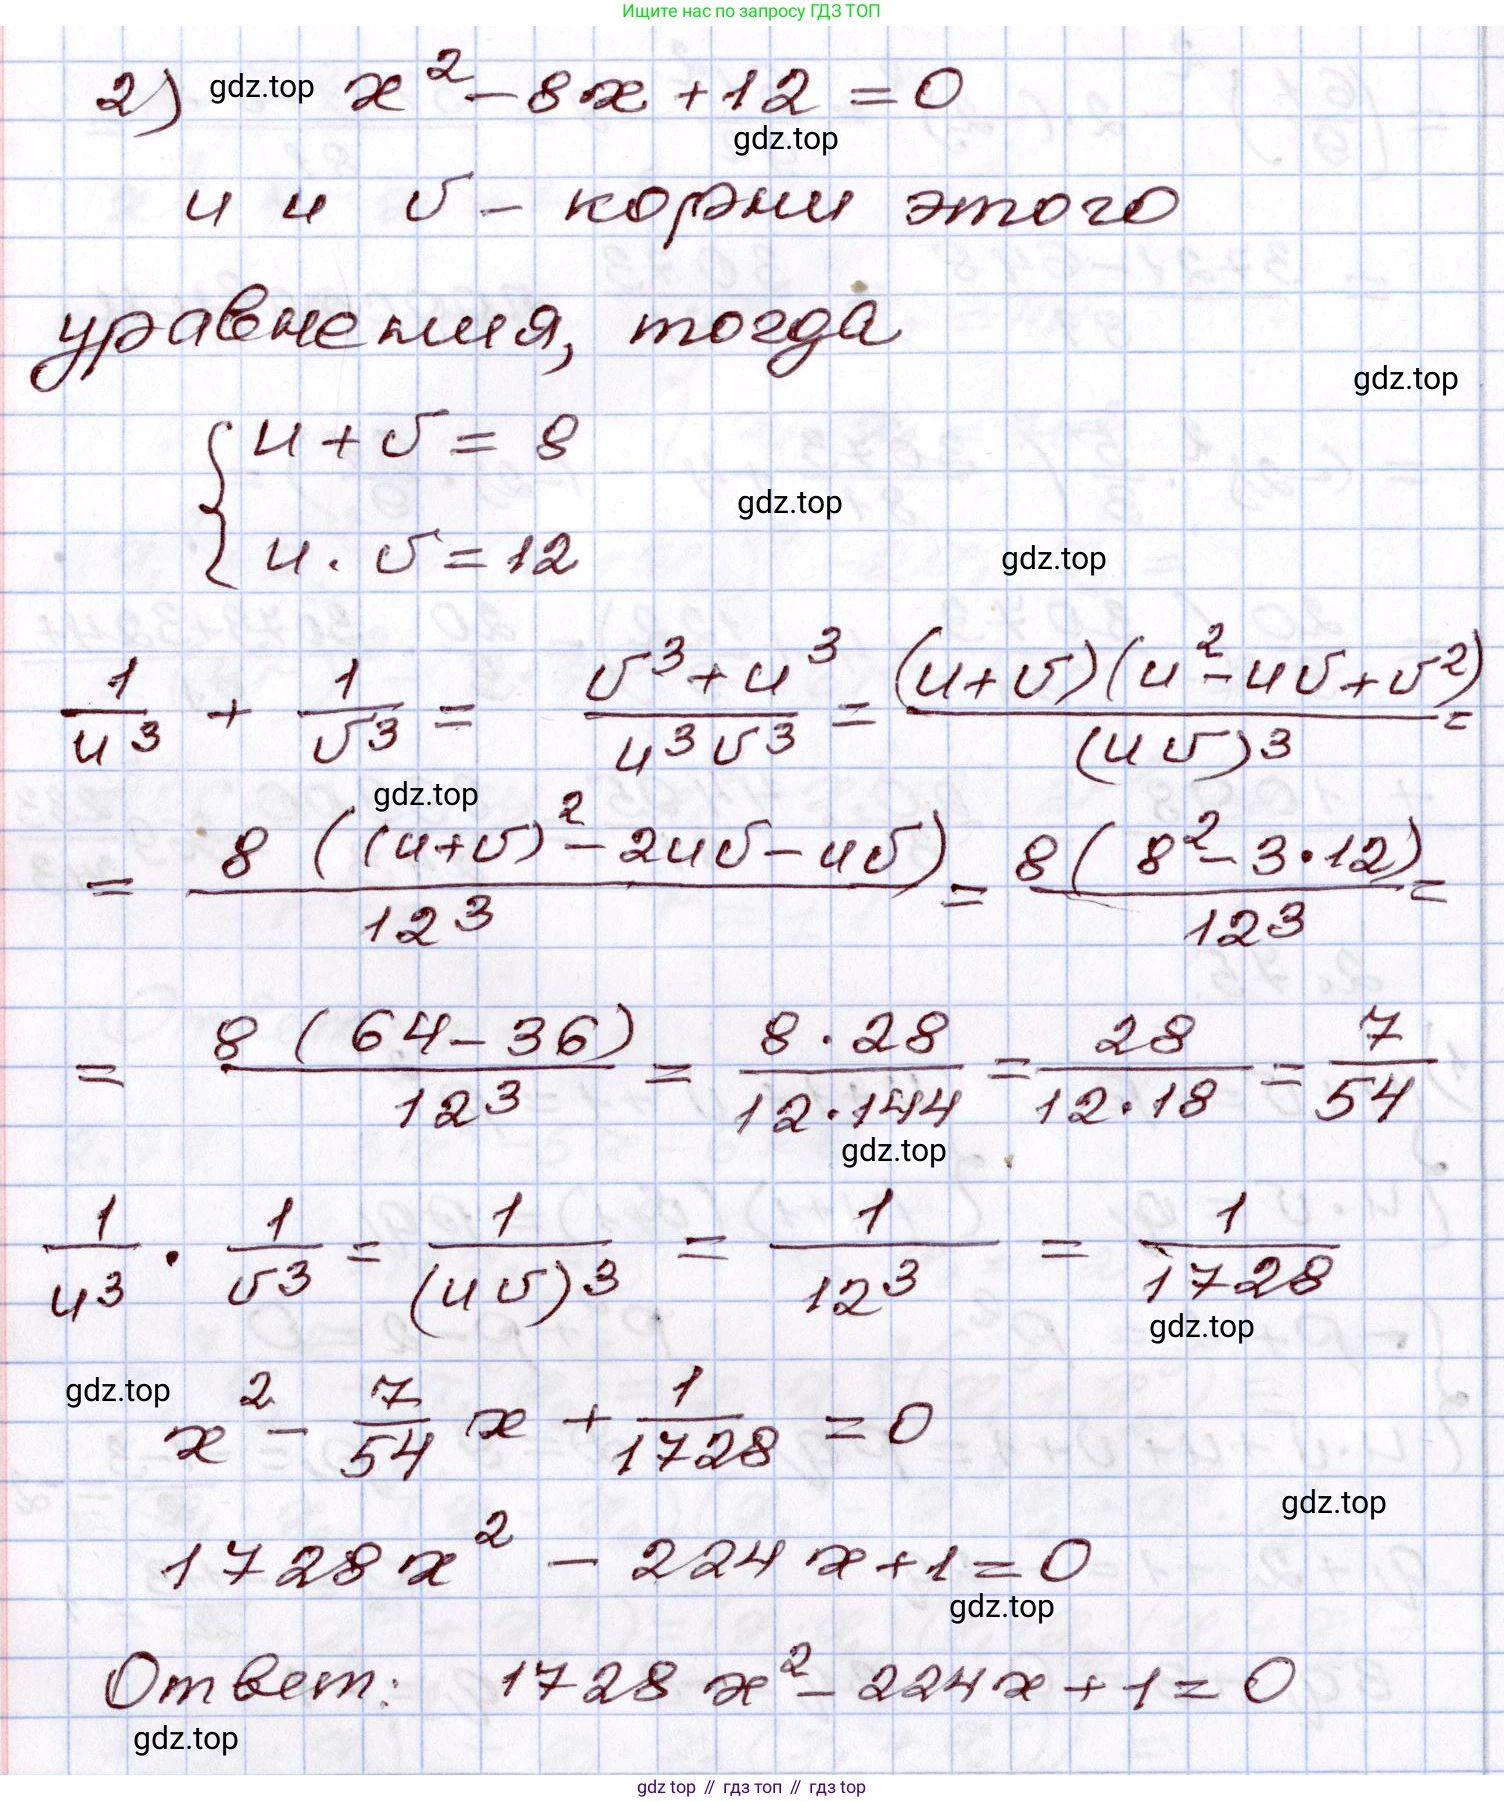 Ищите нас по запросу ГДЗ ТОП
2) gdz.top x² - 8x + 12 = 0
gdz.top
u и v - корни этого
уравнения, тогда
gdz.top
{ u + v = 8
gdz.top
u · v = 12
gdz.top
1/u³ + 1/v³ = (v³ + u³)/(u³v³) = ((u+v)(u² - uv + v²))/((uv)³) =
gdz.top
= (8((u+v)² - 2uv - uv))/(12³) = (8(8² - 3·12))/(12³) =
= (8(64 - 36))/(12³) = (8·28)/(12·144) = 28/(12·18) = 7/54
gdz.top
1/u³ · 1/v³ = 1/(uv)³ = 1/12³ = 1/1728
gdz.top
gdz.top
x² - 7/54 x + 1/1728 = 0
gdz.top
1728x² - 224x + 1 = 0
gdz.top
Ответ: 1728x² - 224x + 1 = 0
gdz.top
gdz top // гдз топ // гдз top